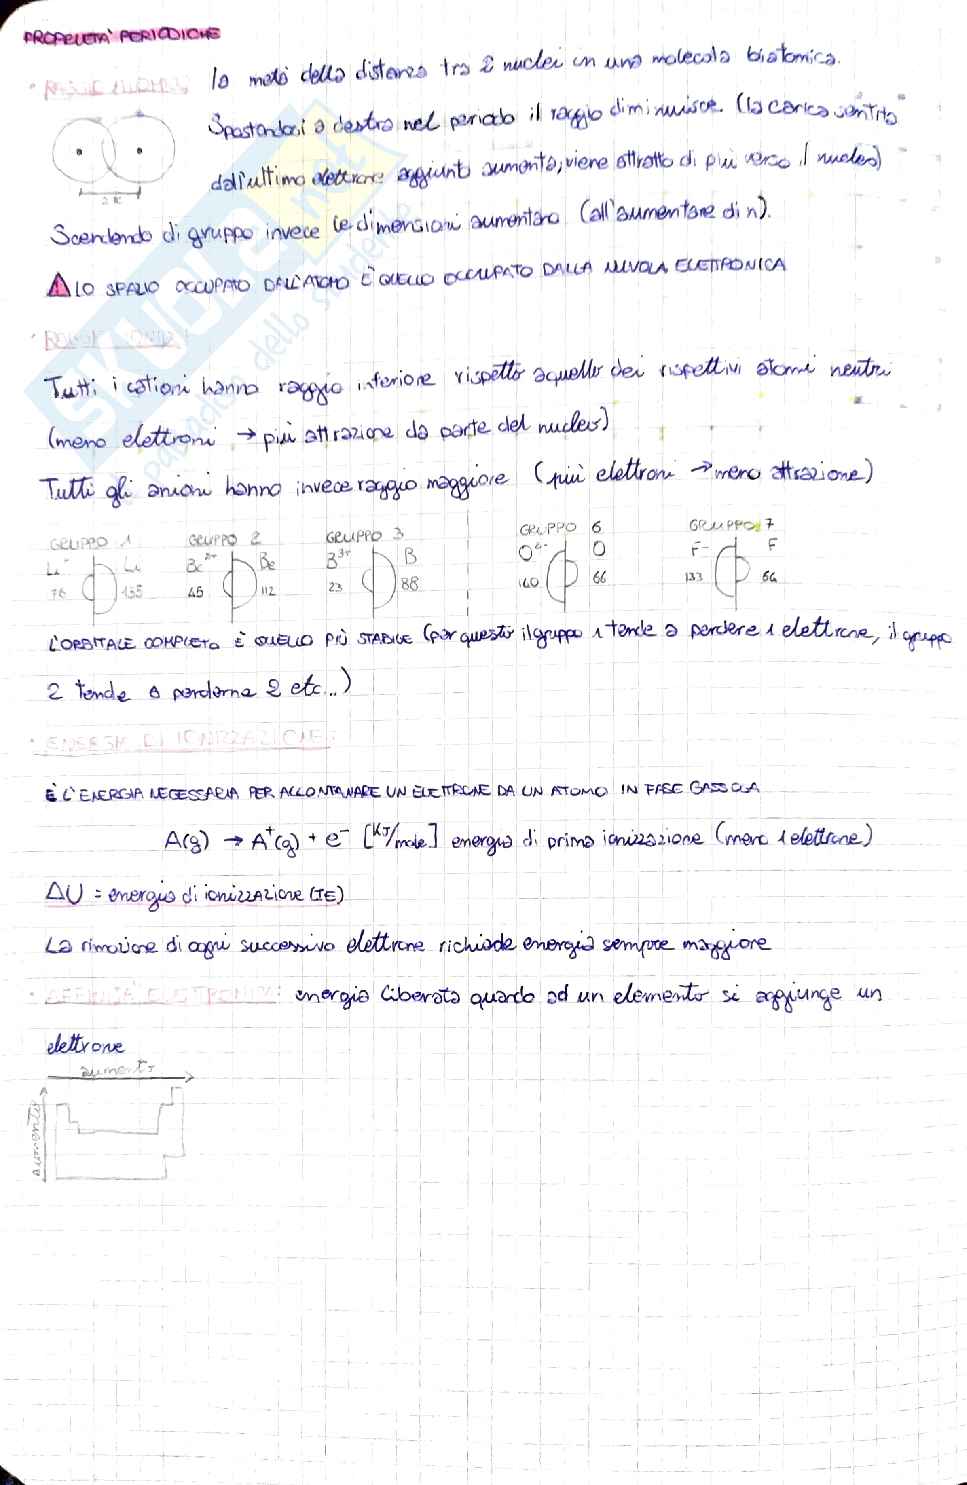 PROPRIETÀ PERIODICHE
· RAGGIO ATOMICO: la metà della distanza tra 2 nuclei in una molecola biatomica.
Spostandoci a destra nel periodo il raggio diminuisce (la carica sentita
dall'ultimo elettrone aggiunto aumenta, viene attratto di più verso il nucleo)
2 r
Scendendo di gruppo invece le dimensioni aumentano (all'aumentare di n).
LO SPAZIO OCCUPATO DALL'ATOMO È QUELLO OCCUPATO DALLA NUVOLA ELETTRONICA
SKUOLA.net
paradiso dello studente
Tutti i cationi hanno raggio inferiore rispetto a quello dei rispettivi atomi neutri
(meno elettroni → più attrazione da parte del nucleo)
Tutti gli anioni hanno invece raggio maggiore (più elettroni → meno attrazione)
GRUPPO 1 GRUPPO 2 GRUPPO 3 GRUPPO 6 GRUPPO 7
Li Be²⁺ Be B³⁺ B O²⁻ O F⁻ F
76 155 45 112 23 88 140 66 133 64
L'ORBITALE COMPLETO È QUELLO PIÙ STABILE (per questo il gruppo 1 tende a perdere 1 elettrone, il gruppo
2 tende a perderne 2 etc...)
· ENERGIA DI IONIZZAZIONE:
È L'ENERGIA NECESSARIA PER ALLONTANARE UN ELETTRONE DA UN ATOMO IN FASE GASSOSA
A(g) → A⁺(g) + e⁻ [KJ/mole] energia di prima ionizzazione (meno 1 elettrone)
ΔU = energia di ionizzazione (IE)
La rimozione di ogni successivo elettrone richiede energia sempre maggiore
· AFFINITÀ ELETTRONICA: energia liberata quando ad un elemento si aggiunge un
elettrone
aumento
aumento